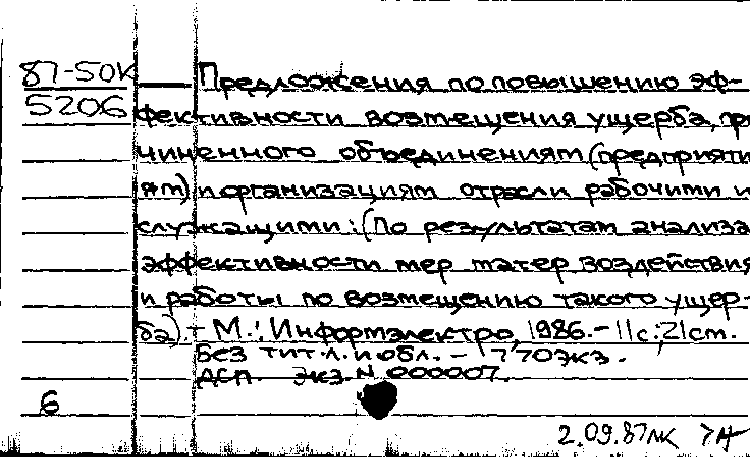 87-50к Предложения по повышению эф-
5206 фективности возмещения ущерба, при
чиненного объединениям (предприяти
ям) и организациям отрасли рабочими и
служащими: (По результатам анализа
эффективности мер матер воздействия
и работы по возмещению такого ущер-
ба). - М.: Информэлектро, 1986. - 11с.; 21см.
Без тит. л. и обл. - 770экз.
ДСП. Экз. N 000007.
6
2.09.87